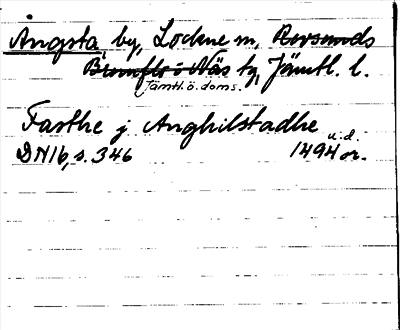 Ångsta, by, Lockne sn, Revsunds
Brunflo o Näs tg, Jämtl. l.
Jämtl. ö. doms.
Fasthe j Anghilstadhe u.d.
DN16, s. 346 1494 or.